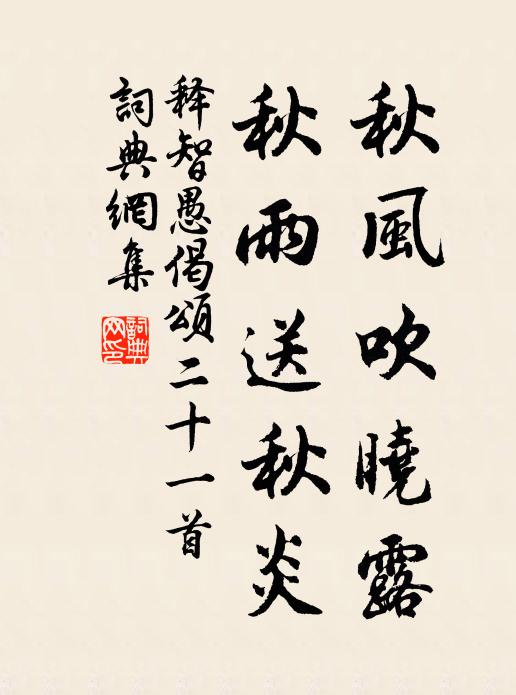 秋風吹曉露
秋雨送秋炎
释智愚偈頌二十一首
詞典網集
詞典网印